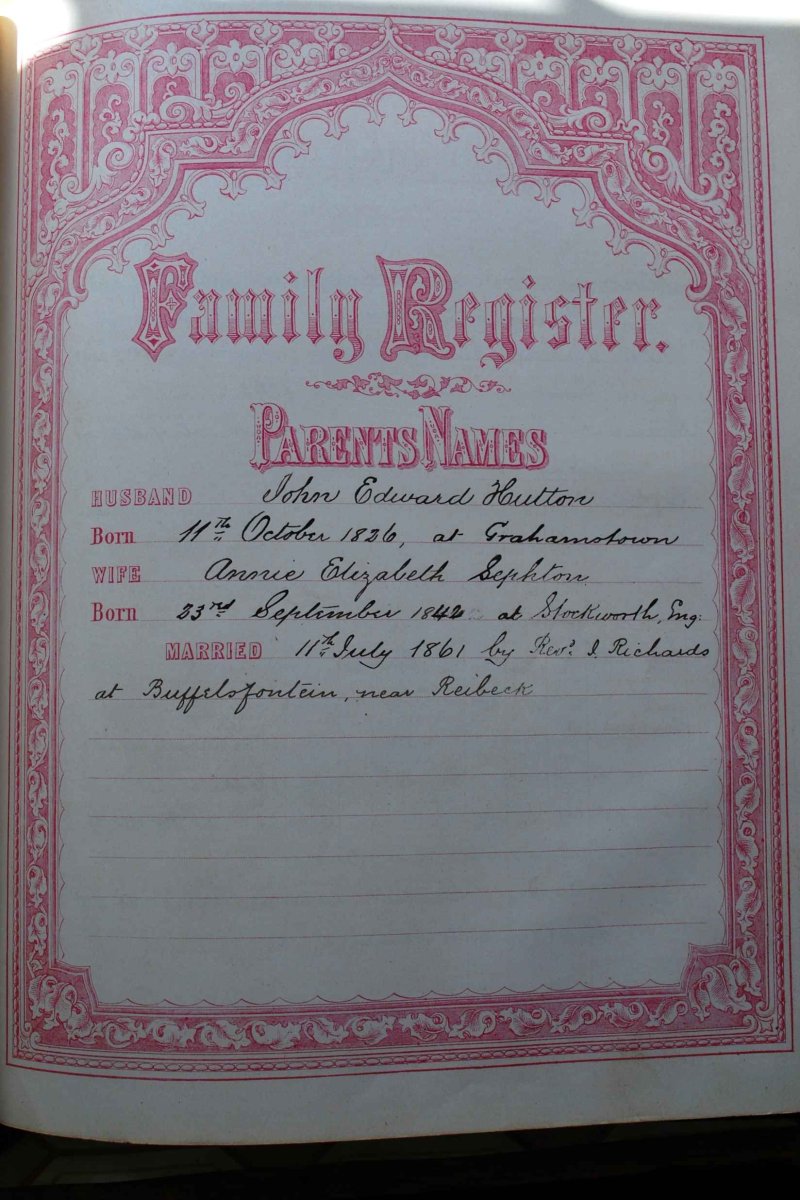 Family Register.
PARENTS NAMES
HUSBAND John Edward Hutton
Born 11th October 1826, at Grahamstown
WIFE Annie Elizabeth Sephton.
Born 23rd September 1842 at Stockworth, Eng:
MARRIED 11th July 1861 by Revd. I. Richards
at Buffelsfontein, near Reibeck